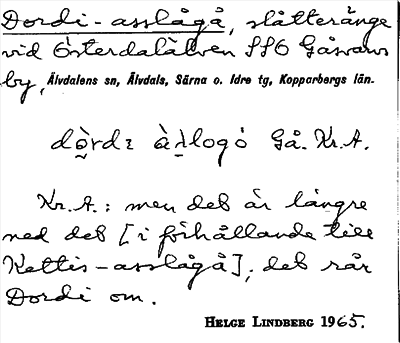 Dordi-asslågå, slåtteränge
vid Österdalälven SSO Gåsvarv
by, Älvdalens sn, Älvdals, Särna o. Idre tg, Kopparbergs län.
Gå. Kr.A.
Kr. A.: men deb är längre
ned deb [i förhållande till
Kettis-asslågå]; deb rår
Dordi om.
HELGE LINDBERG 1965.